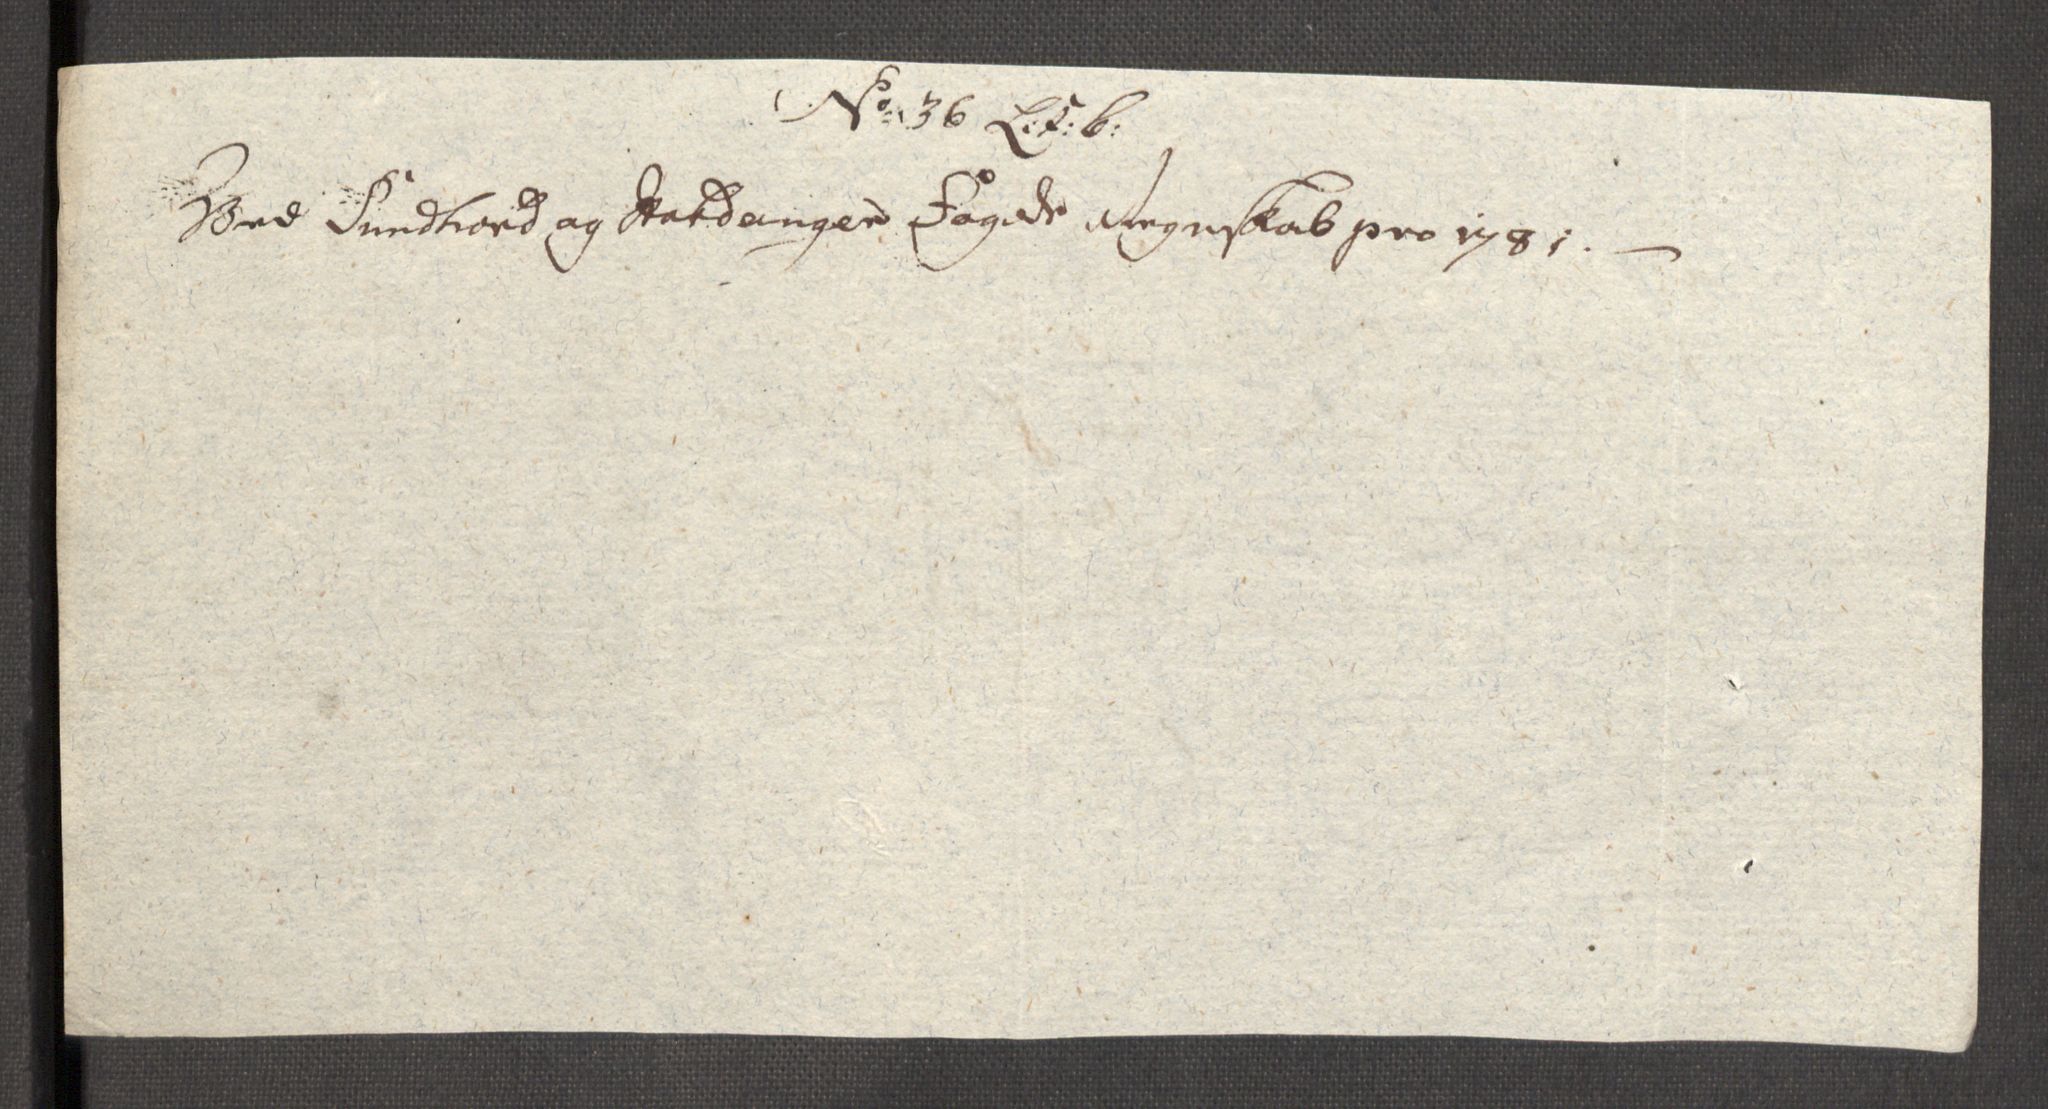 No: 36 Lit: b:
Ved Sundhord og Hardanger Fogds Regnskab pro 1781.